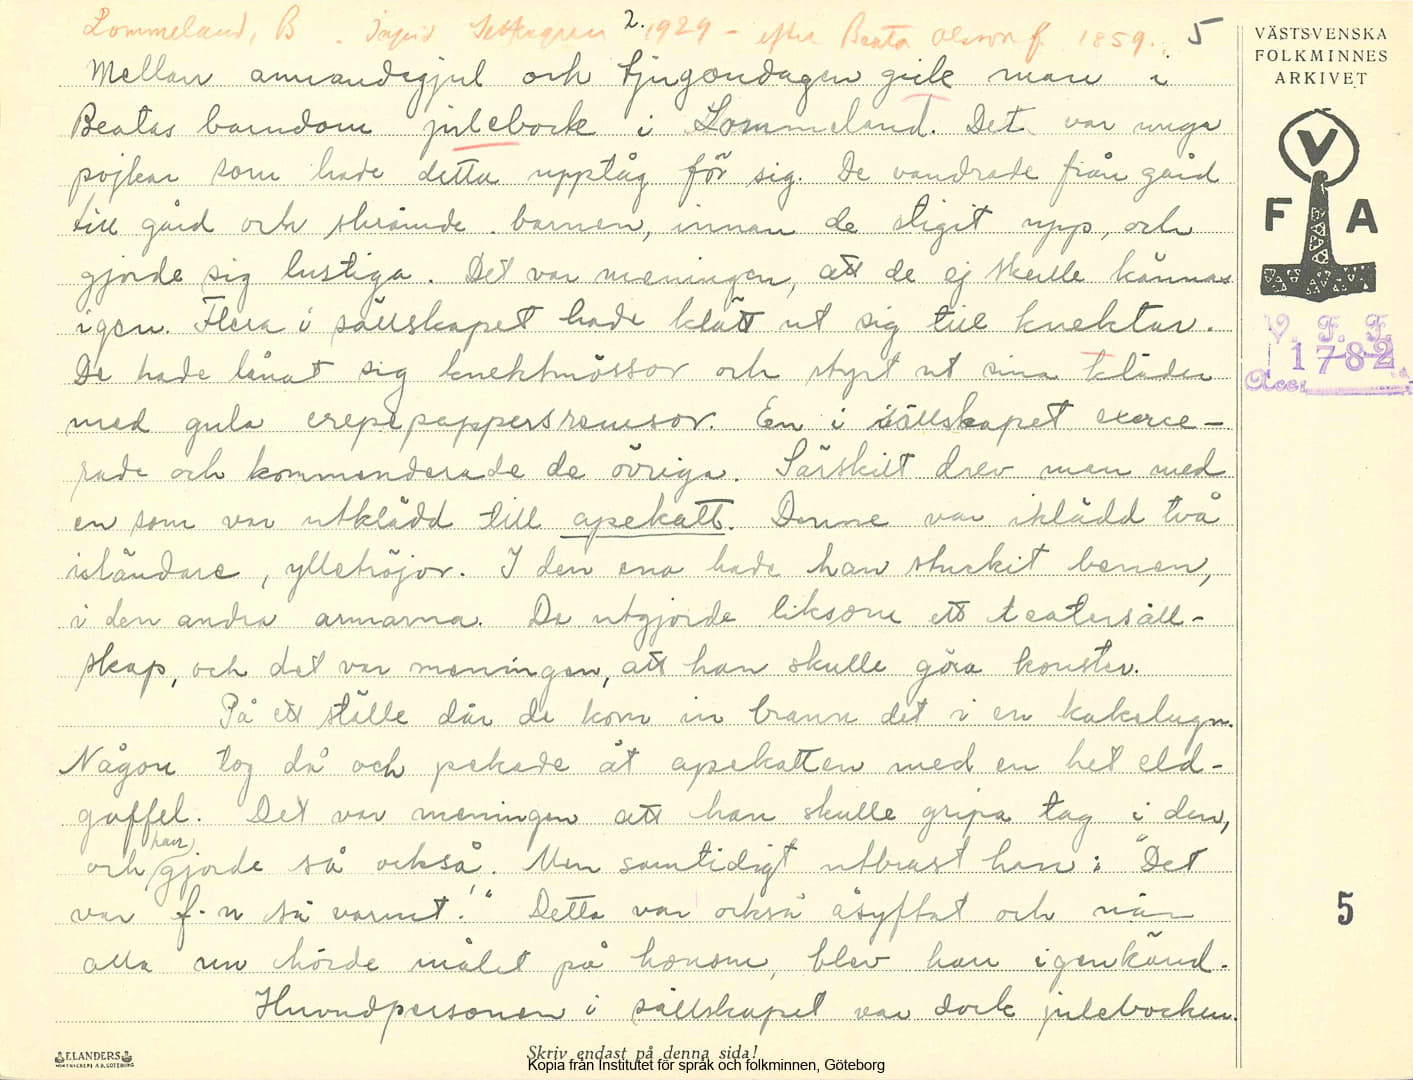 Lommeland, B. Ingrid 2. 1929 - efter Beata Olsson f. 1859. 5
Mellan annandagjul och tjugondagen gick man i
Beatas barndom julebock i Lommeland. Det var unga
pojkar som hade detta upptåg för sig. De vandrade från gård
till gård och skrämde barnen, innan de stigit upp, och
gjorde sig lustiga. Det var meningen, att de ej skulle kännas
igen. Flera i sällskapet hade klätt ut sig till knektar.
De hade lånat sig knektmössor och styrt ut sina kläder
med gula crepepappersremsor. En i sällskapet exerce-
rade och kommenderade de övriga. Särskilt drev man med
en som var utklädd till apekatt. Denne var iklädd två
isländare, ylletröjor. I den ena hade han stuckit benen,
i den andra armarna. De utgjorde liksom ett teatersäll-
skap, och det var meningen, att han skulle göra konster.
På ett ställe där de kom in brann det i en kakelugn.
Någon tog då och pekade åt apekatten med en het eld-
gaffel. Det var meningen att han skulle gripa tag i den,
och han gjorde så också. Men samtidigt utbrast han: "Det
var f-n så varmt!" Detta var också åsyftat och när
alla nu hörde målet på honom, blev han igenkänd.
Huvudpersonen i sällskapet var dock julebocken.
VÄSTSVENSKA
FOLKMINNES
ARKIVET
V
F A
V. F. F.
1782
Acc:
5
ELANDERS
Skriv endast på denna sida!
Kopia från Institutet för språk och folkminnen, Göteborg